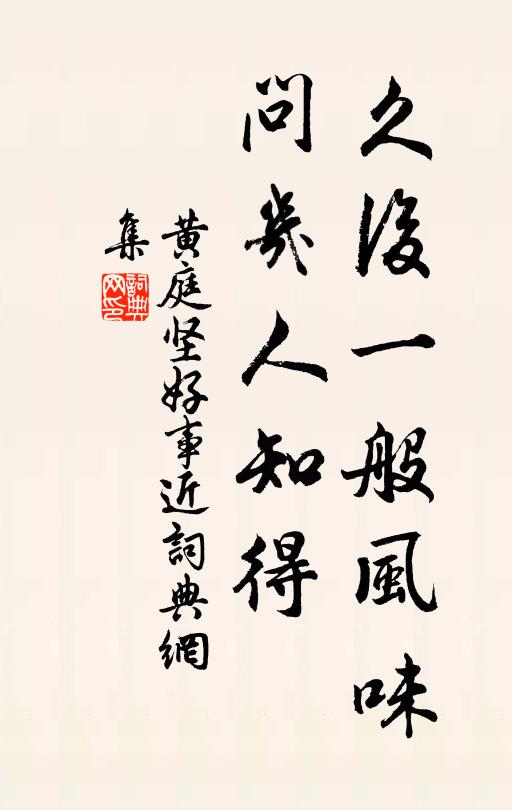 久後一般風味
問幾人知得
黄庭坚好事近詞典網
集
詞典
网印